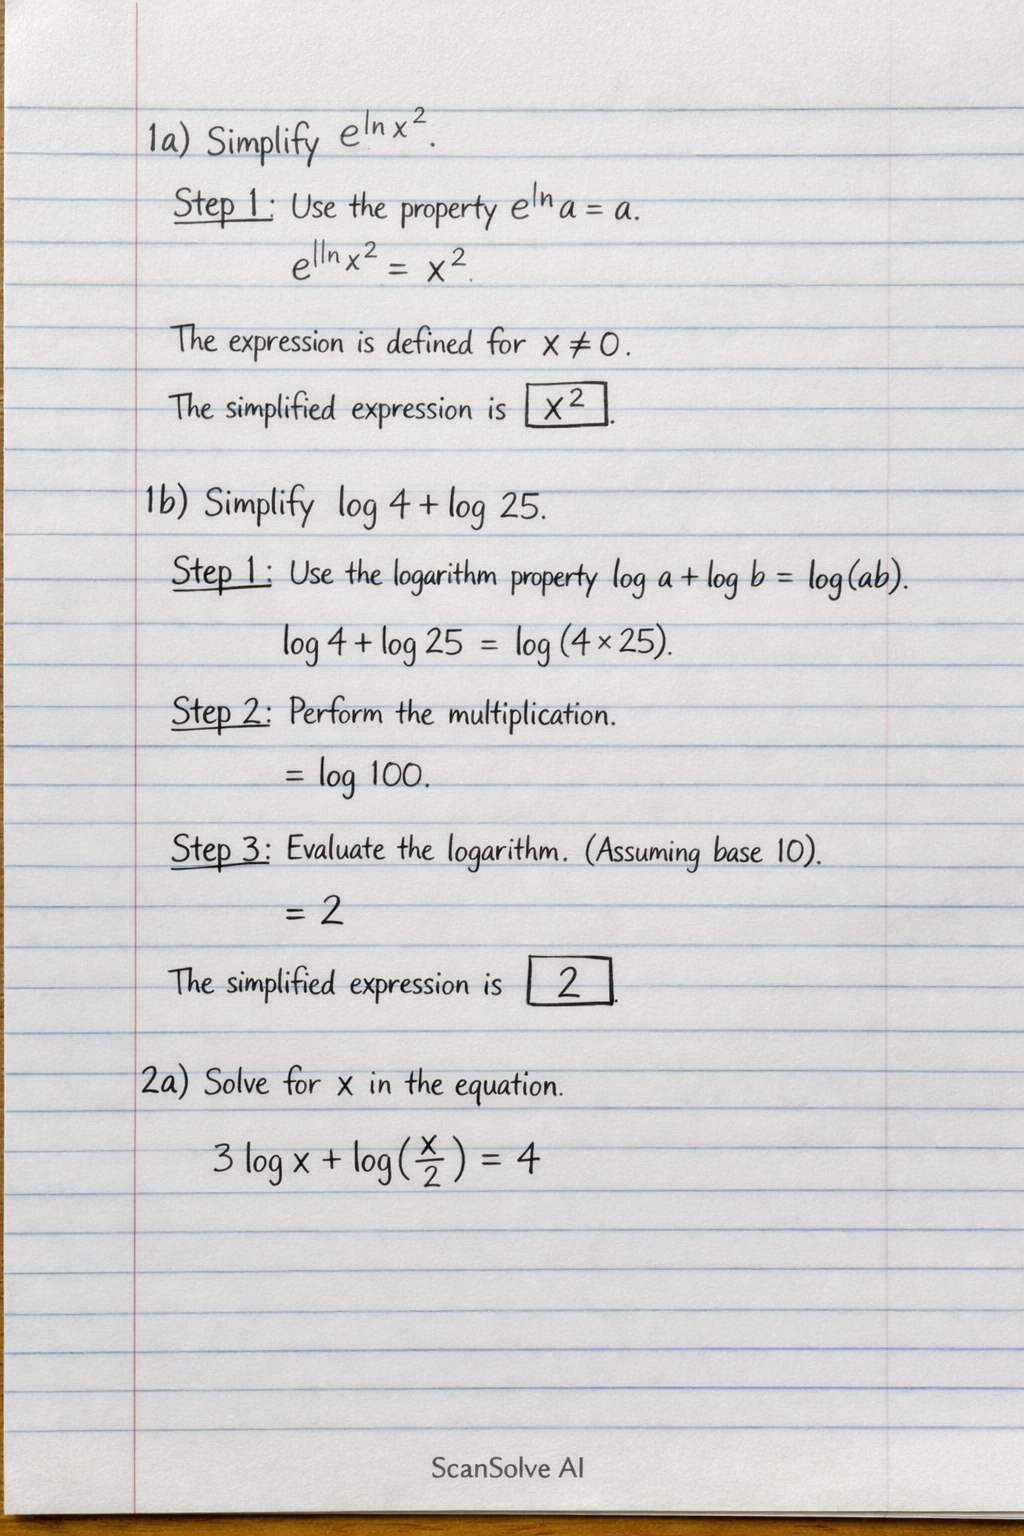 1a) Simplify e^{ln x^2}.
Step 1: Use the property e^{ln} a = a.
e^{lln x^2} = x^2.
The expression is defined for x ≠ 0.
The simplified expression is x^2.
1b) Simplify log 4 + log 25.
Step 1: Use the logarithm property log a + log b = log(ab).
log 4 + log 25 = log (4 × 25).
Step 2: Perform the multiplication.
= log 100.
Step 3: Evaluate the logarithm. (Assuming base 10).
= 2
The simplified expression is 2.
2a) Solve for x in the equation.
3 log x + log(x/2) = 4
ScanSolve AI